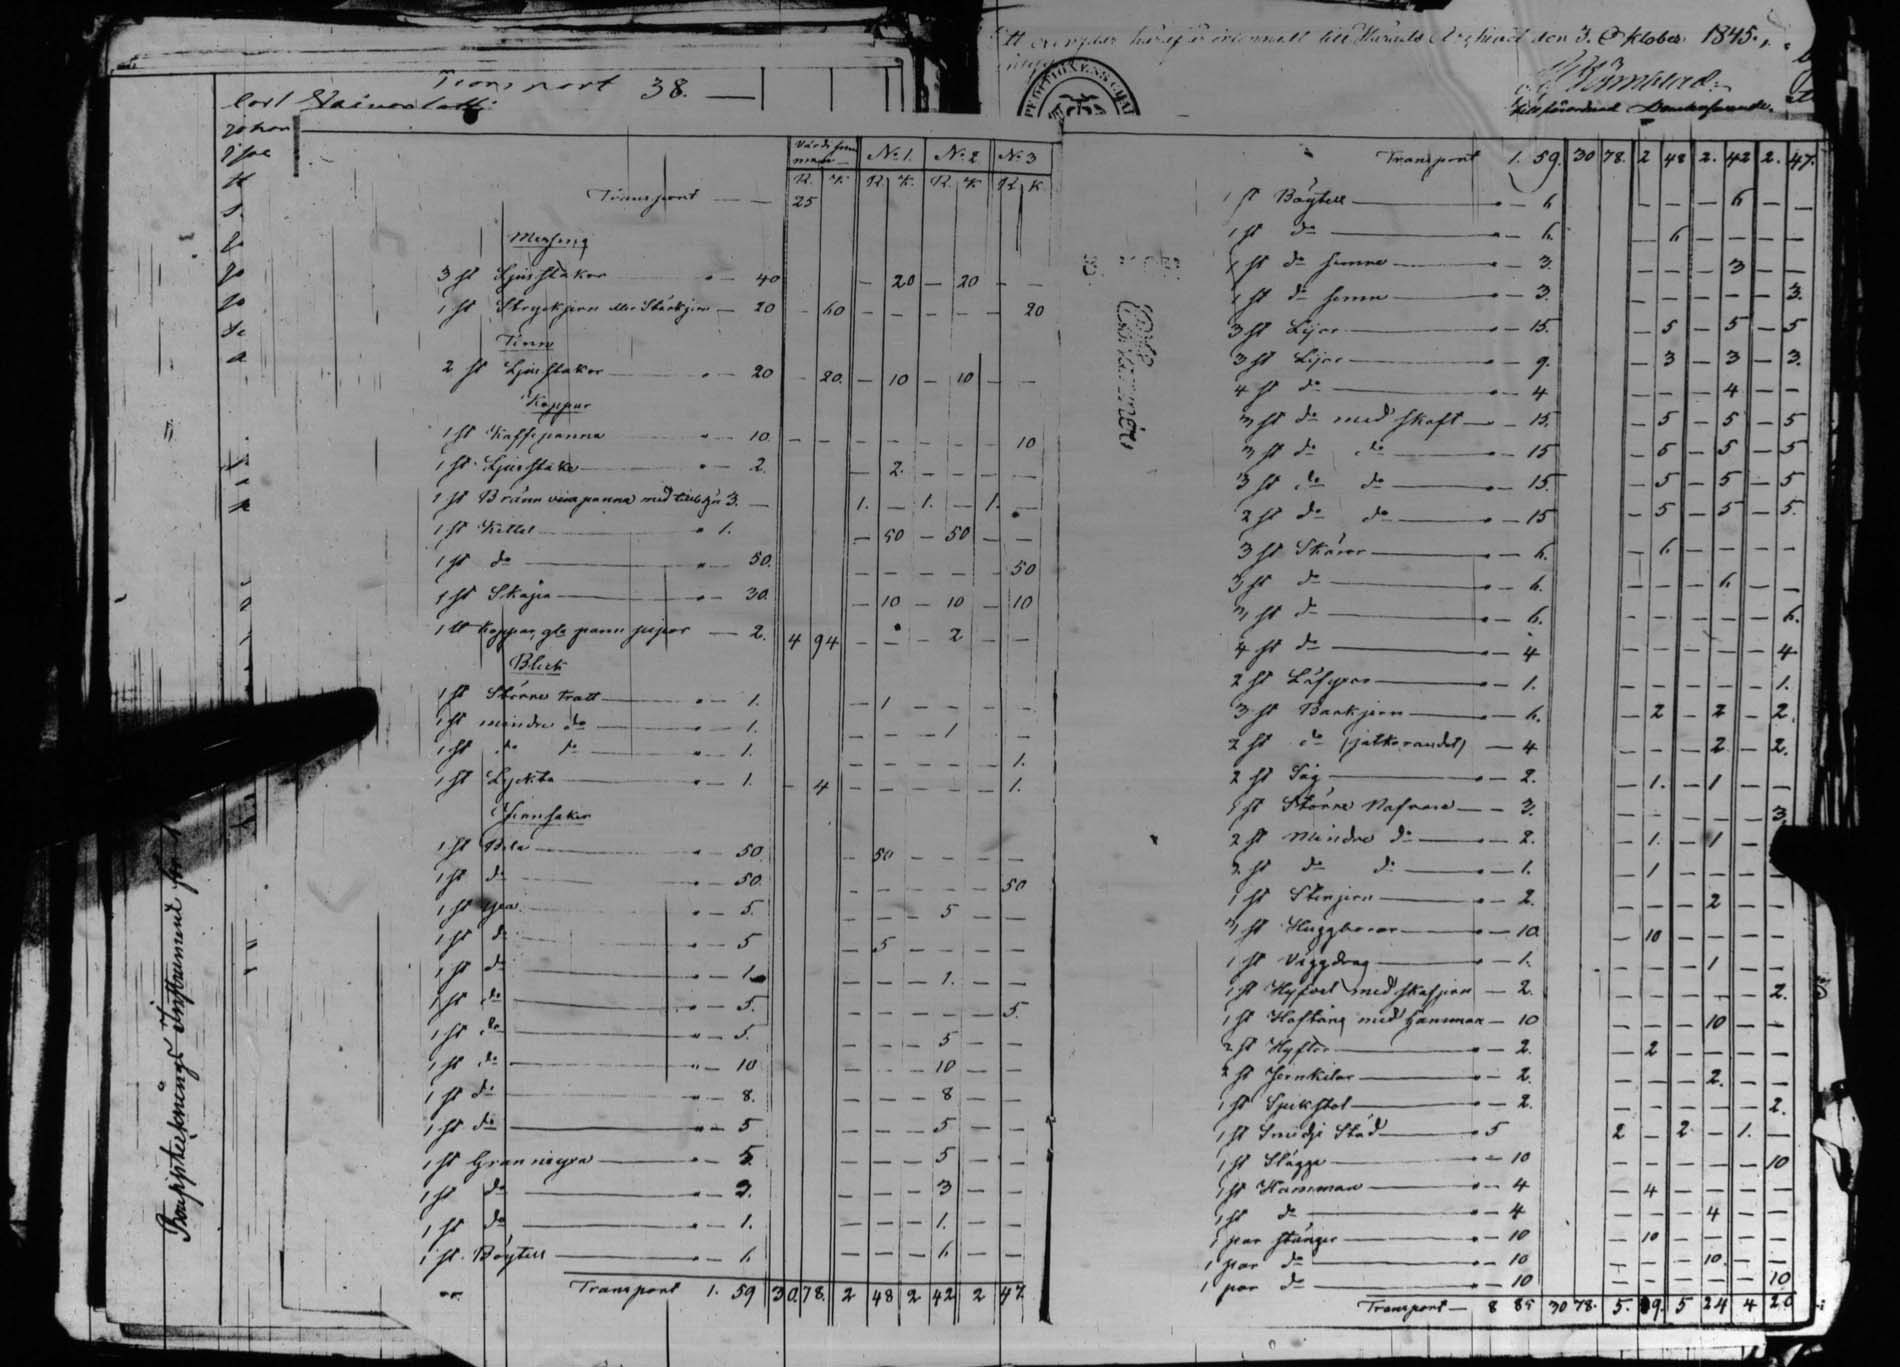 Transport 38. —
Carl
Johan
härifrån inlemnadt till Härads Archivet den 3. Oktober 1845.,
Värde summan — No 1. No 2 No 3
R. K R. K. R. K R K
Transport — — 25
Messing
3 st Ljusstakar " — 40 — 20 — 20 — —
1 st Strykjern eller Stärkjern — 20 — 60 — — — — — 20
Tenn
2 st Ljusstakar " — 20 — 20. — 10 — 10 — —
Koppar
1 st Kaffepanna " — 10. — — — — — — 10
1 st Ljusstake " — 2. — 2. — — — —
1 st Bränvinspanna med tillbhör 3. — 1. — 1. — 1. —
1 st Kittel " 1. — 50 — 50 — —
1 st do " — 50. — — — — — 50
1 st Skåpa " — 30. — 10 — 10 — 10
1 lt Koppar, gla pann pipor — 2. 4 94 — — — 2 — —
Bleck
1 st Större Tratt " — 1. — 1 — — — —
1 st mindre do " — 1. — — — 1 — —
1 st do do " — 1. — — — — — 1.
1 st Lyckta " — 1. — 4 — — — — — 1.
Jernsaker
1 st Bila " — 50 — 50 — — — —
1 st do " — 50. — — — — — 50
1 st yxa " — 5. — — — 5 — —
1 st do " — 5 — 5 — — — —
1 st do " — 1. — — — 1. — —
1 st do " — 5. — — — — — 5.
1 st do " — 5. — — — 5 — —
1 st do " — 10 — — — 10 — —
1 st do " — 8. — — — 8 — —
1 st do " — 5 — — — 5 — —
1 st Grannayxa " — 5. — — — 5 — —
1 st do " — 3. — — — 3 — —
1 st do " — 1. — — — 1. — —
1 st Böytell " — 6 — — — 6 — —
Transport 1. 59 30. 78. 2 48 2 42 2 47.
Transport 1. 59. 30 78. 2 48 2. 42 2. 47.
1 st Böytell " — 6 — — — 6 — —
1 st do " — 6. — 6 — — — —
1 st do semre " — 3. — — — 3 — —
1 st do semre " — 3. — — — — — 3.
3 st Lijor " — 15. — 5 — 5 — 5
3 st Lijor " — 9. — 3 — 3 — 3.
4 st do " — 4 — — — 4 — —
3 st do med skaft " — 15. — 5 — 5 — 5
3 st do do " — 15 — 5 — 5 — 5
3 st do do " — 15. — 5 — 5 — 5
2 st do do " — 15 — 5 — 5 — 5.
3 st Skäror " — 6. — 6 — — — —
3 st do " — 6. — — — 6 — —
3 st do " — 6. — — — — — 6.
4 st do " — 4 — — — — — 4
2 st " — 1. — — — — — 1.
3 st Barkjern " — 6. — 2 — 2 — 2.
2 st do — 4 — — — 2 — 2.
2 st Såg " — 2. — 1. — 1 — —
1 st Större Nafvare — — 3. — — — — — 3
2 st Mindre do " — 2. — 1. — 1 —
2 st do do " — 1. — 1 — — — —
1 st Stenjern " — 2. — — — 2 — —
3 st Huggborar " — 10. — 10 — — — —
1 st Väggdrag " — 1. — — — 1 — —
1 st Hyfvel med skafjern — 2. — — — — — 2.
1 st Hoftång med hammar — 10 — — — 10 — —
2 st Hyflor " — 2. — 2 — — — —
2 st Jernkilar " — 2. — — — 2. — —
1 st Spikstol " — 2. — — — — — 2.
1 st Smidje Städ " 5 2 — 2 — 1. —
1 st Slägga " — 10 — — — — — 10
1 st Hammar " — 4 — 4 — — — —
1 st do " — 4 — — — 4 — —
1 par stänger " — 10 — 10 — — — —
1 par do " — 10 — — — 10. — —
1 par do " — 10 — — — — — 10.
Transport — 8 85 30 78. 5. 5 24 4 20
Bouppteckningz Instrument för